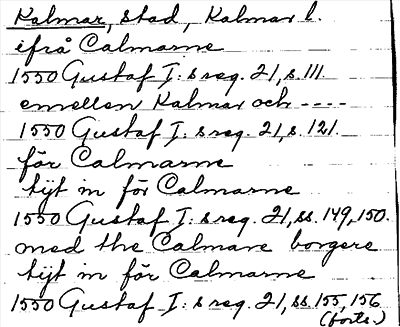 Kalmar, stad, Kalmar l.
ifrå Calmarne
1550 Gustaf I:s reg. 21, s. 111.
emellen Kalmar och ----
1550 Gustaf I:s reg. 21, s. 121.
för Calmarne
tijt in för Calmarne
1550 Gustaf I:s reg. 21, ss. 149, 150.
med the Calmare borgere
tijt in för Calmarne
1550 Gustaf I:s reg. 21, ss. 155, 156
(forts.)